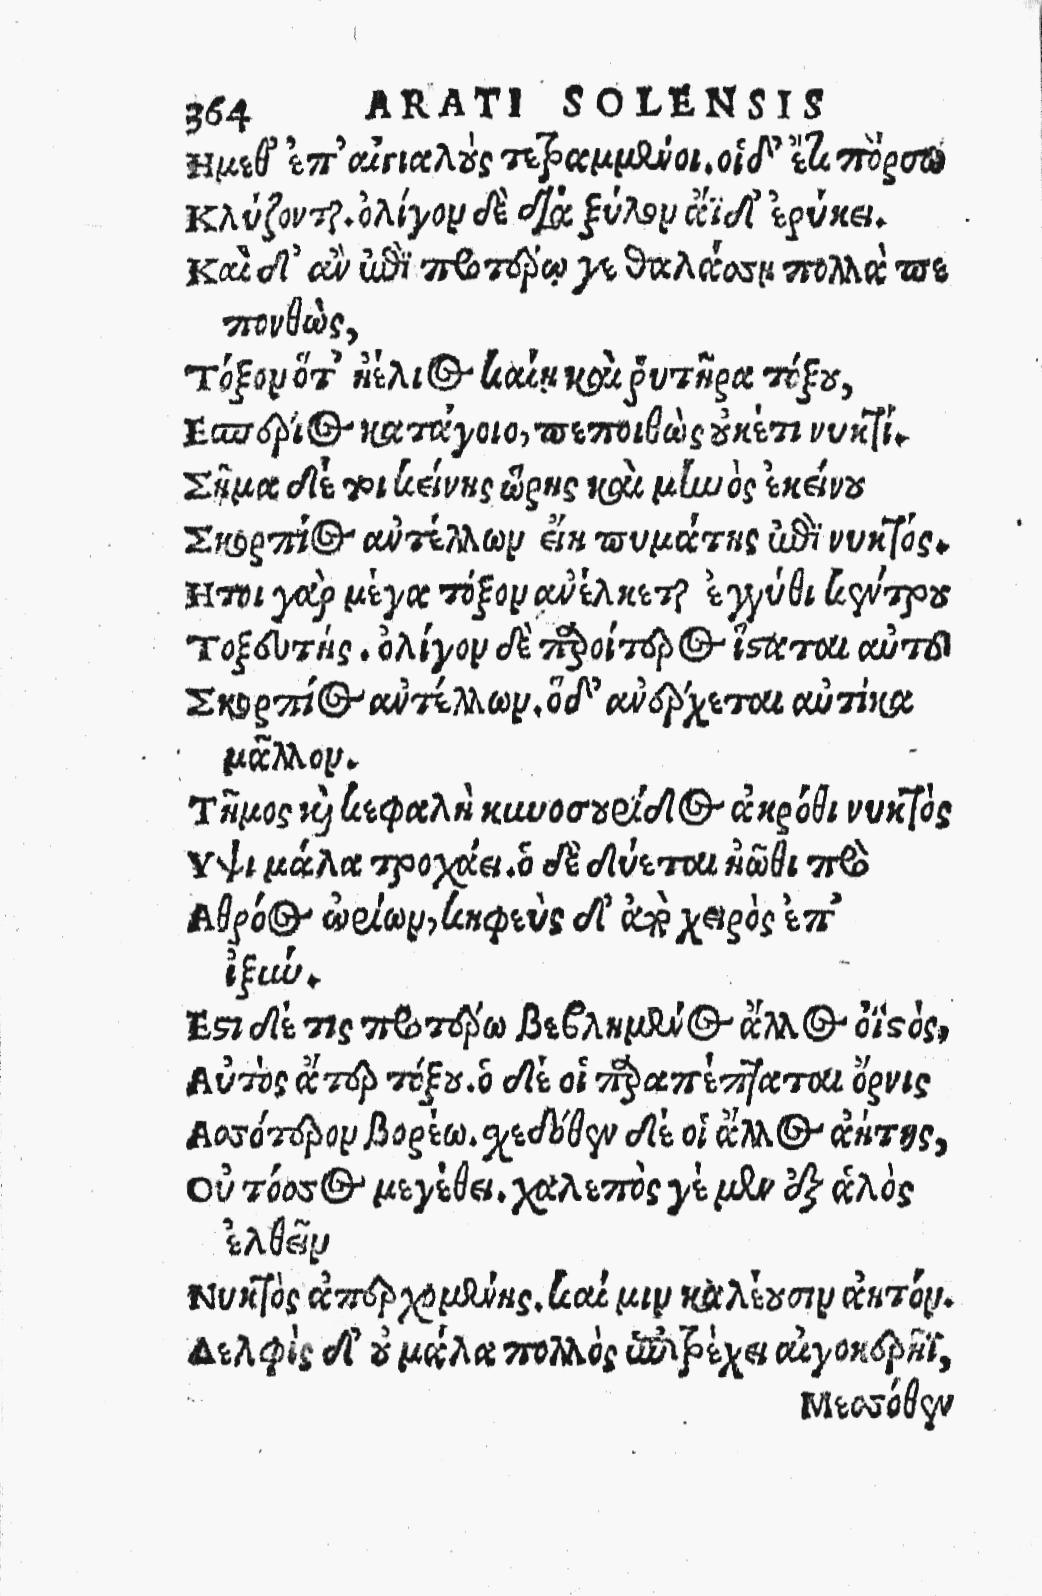 364 ARATI SOLENSIS
Ημεθ' ἐπ' αἰγιαλοὺς τετραμμένοι. οἱ δ' ἔτι πόρσω
Κλύζονται. ὀλίγον δὲ διὰ ξύλον ἄϊδ' ἐρύκει.
Καὶ δ' ἂν ἐπὶ προτέρῳ γε θαλάσσῃ πολλὰ πε
πονθὼς,
Τόξον ὅτ' ἠέλιος καίῃ καὶ ῥυτῆρα τόξου,
Εσπέριος κατάγοιο, πεποιθὼς οὐκέτι νυκτί.
Σῆμα δέ τοι κείνης ὥρης καὶ μηνὸς ἐκείνου
Σκορπίος αὐτέλλων εἴη πυμάτης ἐπὶ νυκτός.
Ητοι γὰρ μέγα τόξον ἀνέλκεται ἐγγύθι κέντρου
Τοξευτής. ὀλίγον δὲ παροίτερος ἵσταται αὐτοῦ
Σκορπίος αὐτέλλων. ὅδ' ἀνέρχεται αὐτίκα
μᾶλλον.
Τῆμος καὶ κεφαλὴ κυνοσουρίδος ἀκρόθι νυκτὸς
Υψι μάλα τροχάει. ὁ δὲ δύεται ἠῶθι πρὸ
Αθρόος ὠρίων, κηφεὺς δ' ἀπὸ χειρὸς ἐπ'
ἰξύν.
Εστι δέ τις προτέρω βεβλημένος ἄλλος ὀϊστὸς,
Αὐτὸς ἄτερ τόξου. ὁ δέ οἱ παραπέπταται ὄρνις
Ασσότερον βορέω. σχεδόθεν δέ οἱ ἄλλος ἀήτης,
Οὐ τόσσος μεγέθει. χαλεπός γέ μεν ἐξ ἁλὸς
ἐλθεῖν
Νυκτὸς ἀπερχομένης. καί μιν καλέουσιν ἀητόν.
Δελφὶς δ' οὐ μάλα πολλὸς ἐπιτρέχει αἰγοκερῆϊ,
Μεσσόθεν